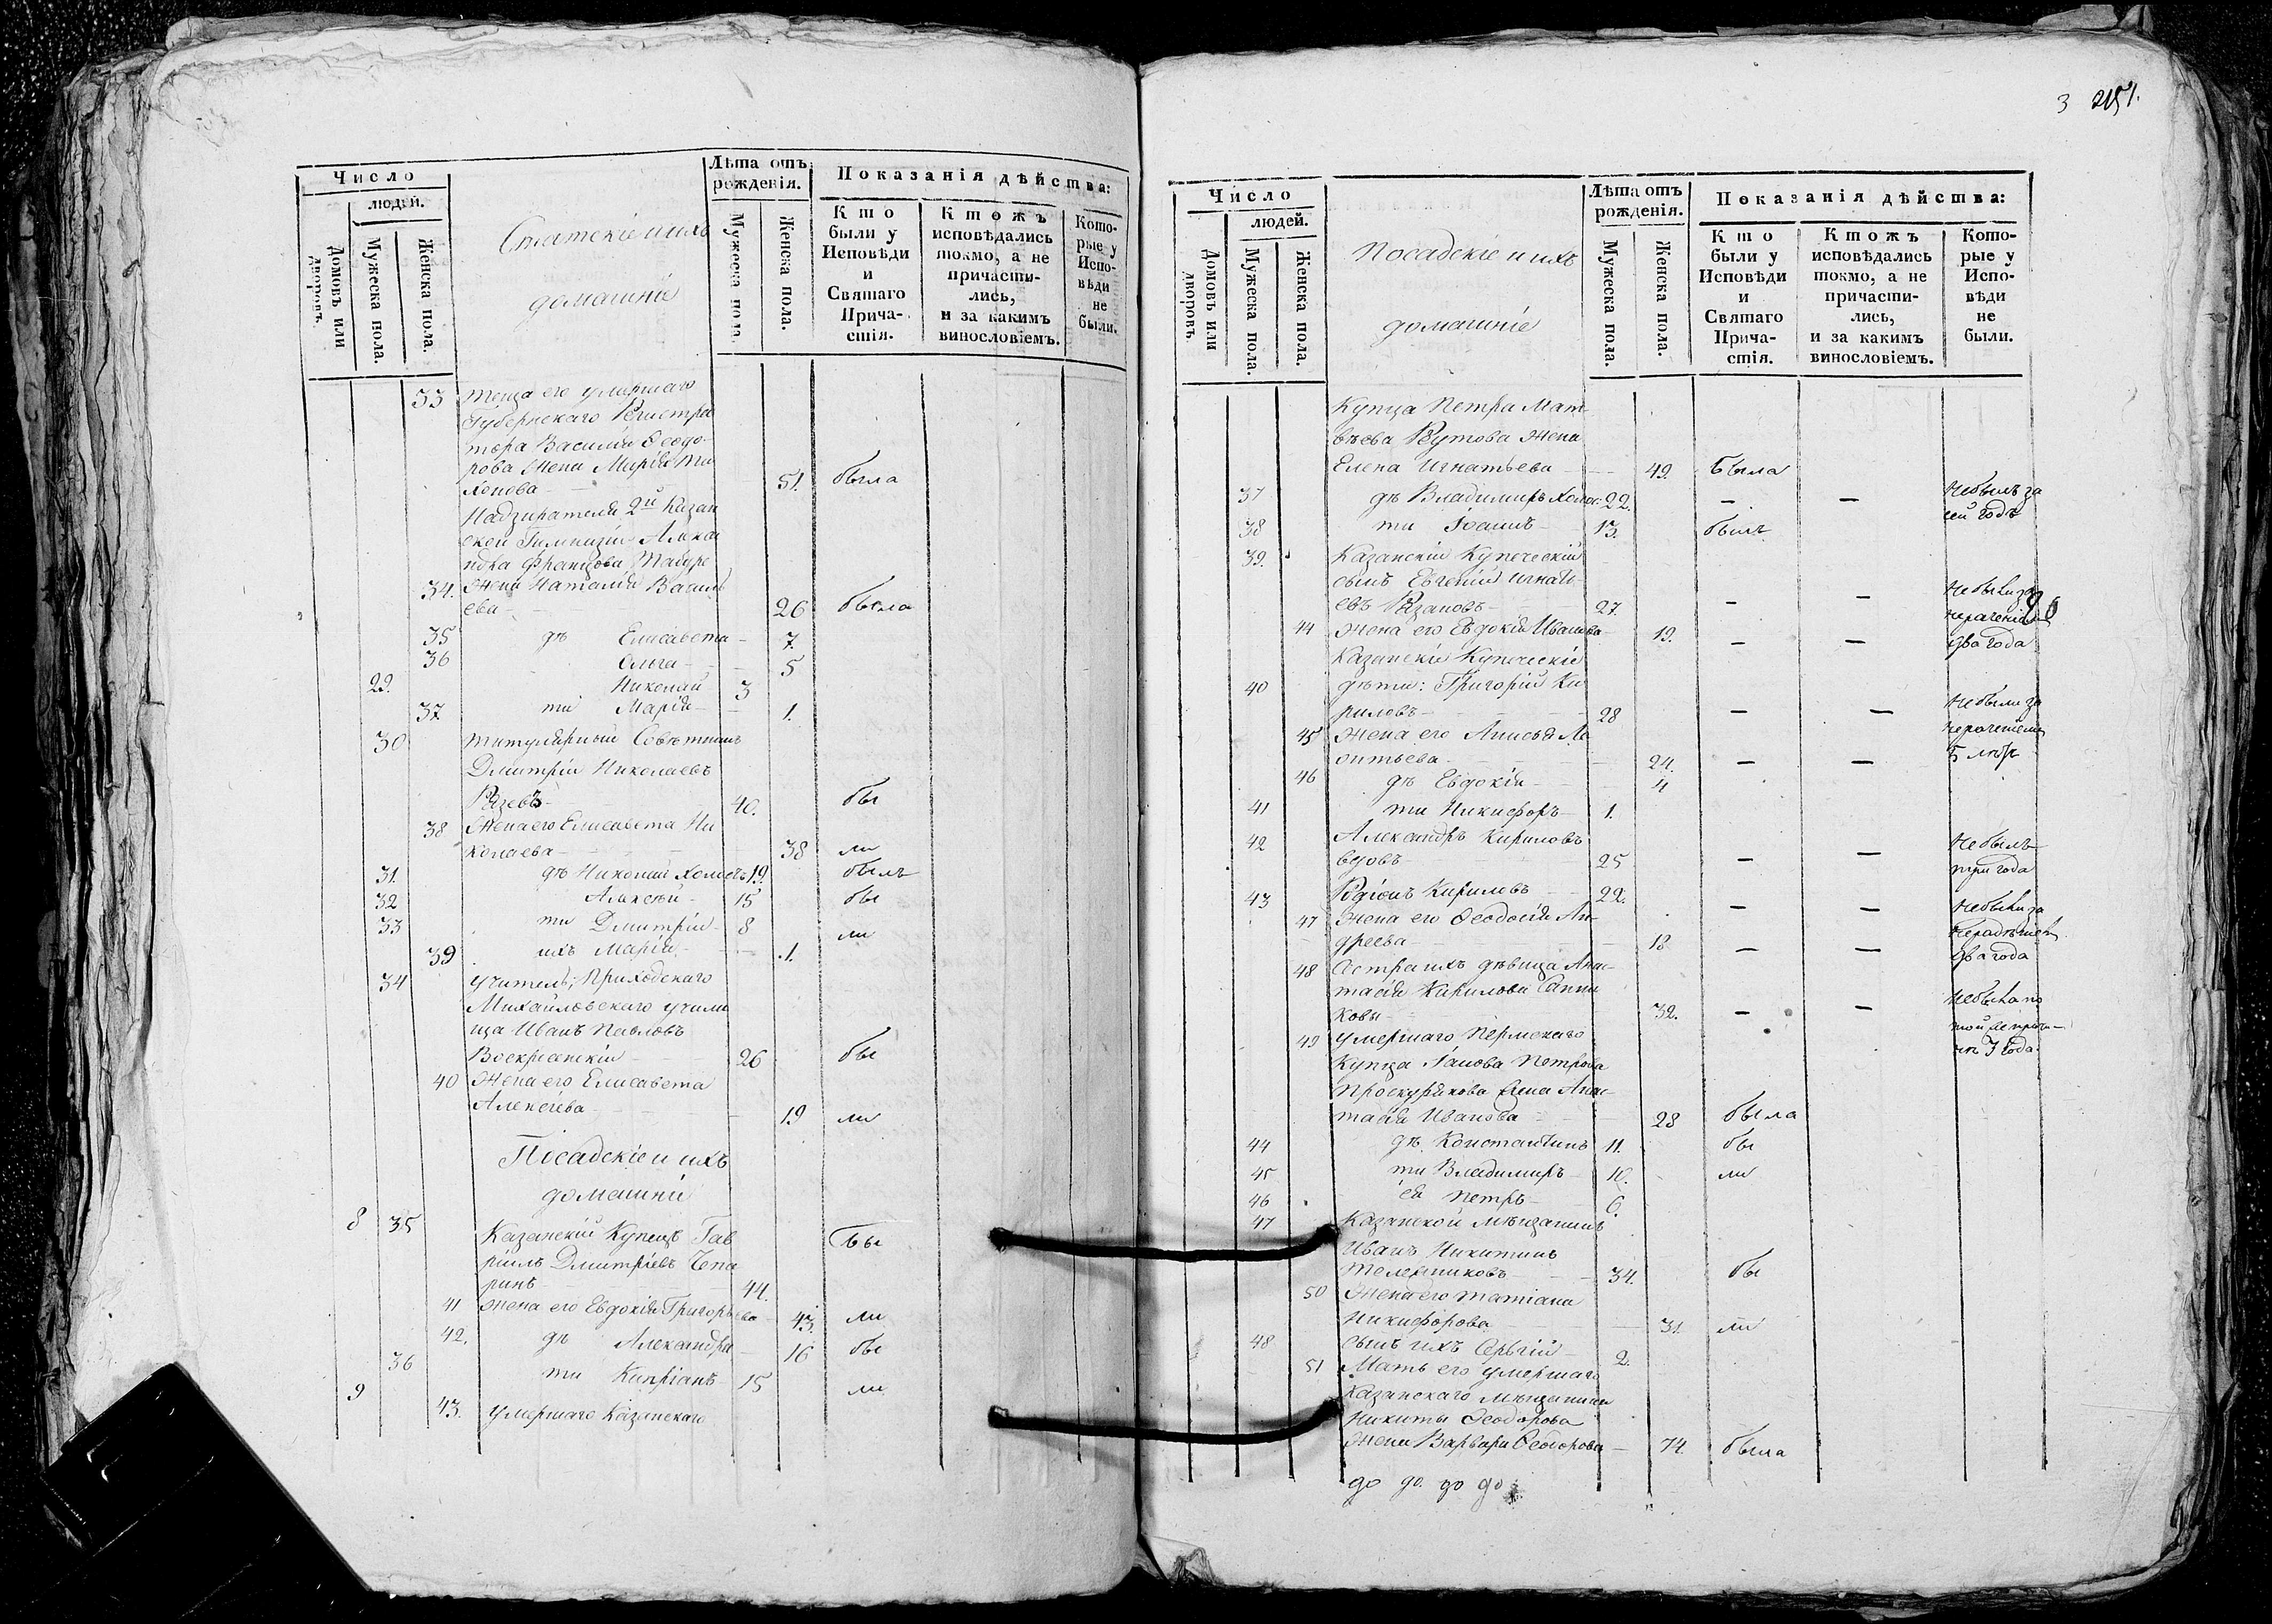 Число
людей.
Домовъ или дворовъ.
Мужеска пола.
Женска пола.
Статскіе и ихъ
домашніе
Лѣта отъ рожденія.
Мужеска пола.
Женска пола.
Показанія дѣйства:
Кто были у Исповѣди и Святаго Причастія.
Ктожъ исповѣдались токмо, а не причастились, и за какимъ винословіемъ.
Которые у Исповѣди не были.
33 теща его умершаго
Губернскаго Регистра
тора Василія Ѳеодо-
рова жена Марія Ти
хонова 51. была
Надзирателя 2й Казан
ской Гимназіи
34. жена Наталія Василь
ева 26 была
35 дѣ Елисавета 7.
36 Ольга 5
29. Николай 3
37. ти Марія 1.
30 титулярный Совѣтникъ
Дмитрій Николаевъ
40. бы
38 Жена его Елисавета Ни
колаева 38 ли
31. дѣ Николай холостъ 19. былъ
32 Алексѣй 15 бы
33 ти Дмитрій 8 ли
39 ихъ Марія 1.
34 учитель Приходскаго
Михайловскаго учили
ща Иванъ Павловъ
Воскресенскій 26 бы
40 Жена его Елисавета
Алексѣева 19 ли
Посадскіе и ихъ
домашніе
8 35 Казанскій Купецъ Гав
ріилъ Дмитріевъ Чепа
ринъ 44. бы
41 жена его Евдокія Григорьева 43. ли
42. дѣ Александра 16 бы
36 ти Кипріанъ 15 ли
9 43. умершаго Казанскаго
3 251.
Число
людей.
Домовъ или дворовъ.
Мужеска пола.
Женска пола.
Посадскіе и ихъ
домашніе
Лѣта отъ рожденія.
Мужеска пола.
Женска пола.
Показанія дѣйства:
Кто были у Исповѣди и Святаго Причастія.
Ктожъ исповѣдались токмо, а не причастились, и за какимъ винословіемъ.
Которые у Исповѣди не были.
Купца Петра Мат
вѣева жена
Елена Игнатьева 49. была
37 дѣ Владимиръ холос 22. — — Небылъ за
сей годъ
38 ти Іоаннъ 13. былъ
39. Казанскій Купеческій
сынъ Евгеній Игнать
евъ Рязановъ 27. — — Небыли за
44 жена его Евдокія Иванова 19. — — два года
Казанскіе Купеческіе
40 дѣти: Григорій Ки
риловъ 28 — — Небыли за
45 жена его Анисья Ле
онтьева 24. — — 5 лѣтъ
46 дѣ Евдокія 4
41 ти Никифоръ 1.
42 Александръ Кириловъ
вдовъ 25 — — Небылъ
три года
43 Родіонъ Кириловъ 22. — — Небыли за
47 жена его Ѳеодосія Ан-
дреева 18 — — два года
48 Сестра ихъ дѣвица Анас-
тасія Кирилова
32. — — Небыла по
той же причи-
нѣ 3 года.
49 умершаго Пермскаго
Купца Іакова Петрова
Проскурякова жена Анас-
тасія Иванова 28 была
44 дѣ Константинъ 11. бы
45 ти Владимиръ 10. ли
46 ея Петръ 6.
47 Казанской мѣщанинъ
Иванъ Никитинъ
34. бы
50 Жена его татіана
Никифорова 31. ли
48 сынъ ихъ Сергій 2.
51 Мать его умершаго
Казанскаго мѣщанина
Никиты Ѳеодорова
жена Варвара Ѳеодорова 74. была
до до до до